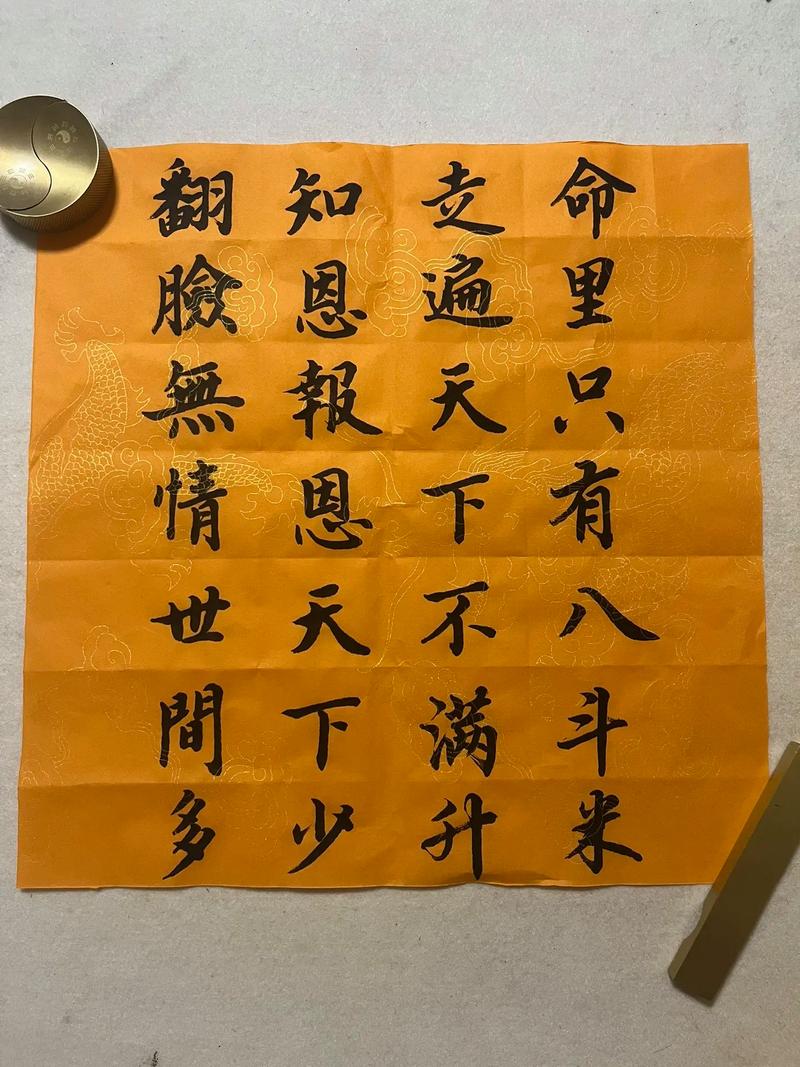 命里只有八斗米
走遍天下不满升
知恩報恩天下少
翻臉無情世間多